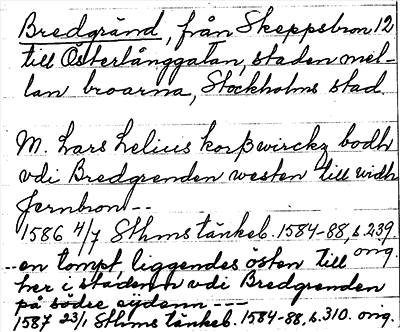 Bredgränd, från Skeppsbron 12
till Österlånggatan, staden mel-
lan broarna, Stockholms stad.
M. Lars Lelius korßwirckz bodh
vdi Bredgrenden westen till widh
Jernbron--
1586 4/7 Sthms tänkeb. 1584-88, s. 239
orig.
--en tompt liggendes östen till
her i stadenn vdi Bredgrenden
på södre sydenn ---
1587 23/1 Sthms tänkeb. 1584-88, s. 310. orig.